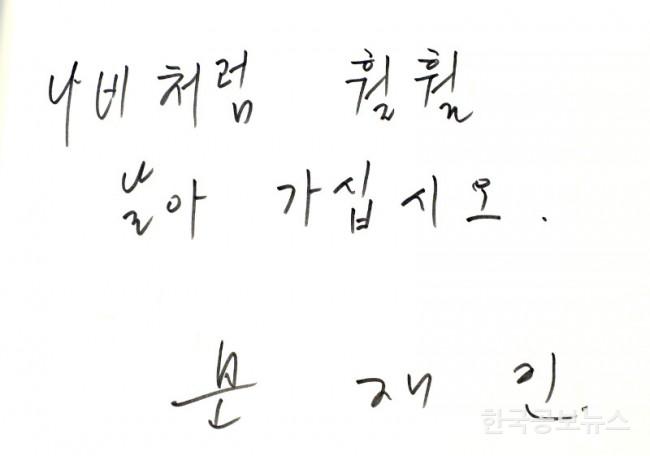 나비처럼 훨훨
날아 가십시오.
문 재 인
한국공보뉴스